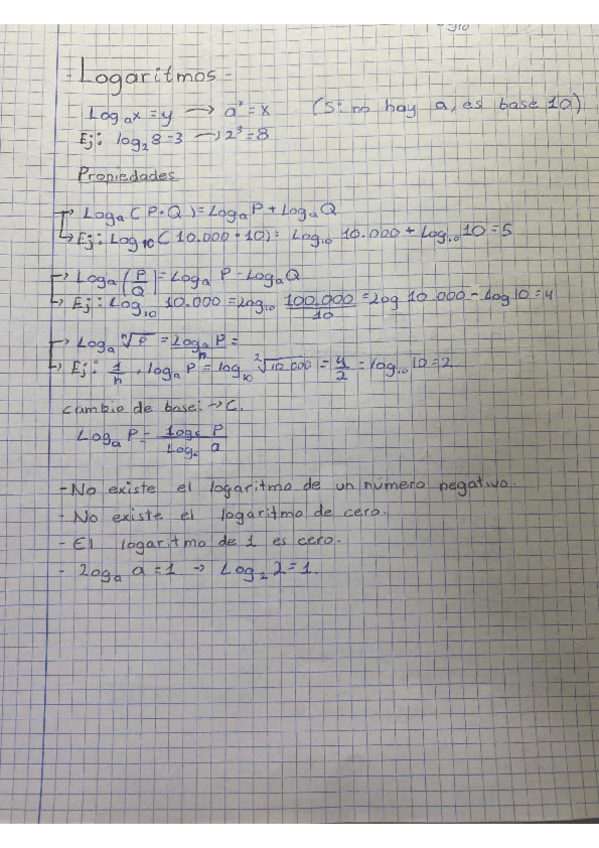 - Logaritmos -
Logₐx = y → aʸ = x (Si no hay a, es base 10)
Ej: log₂8=3 → 2³=8
Propiedades
→ Logₐ(P·Q)=LogₐP+LogₐQ
→ Ej: Log₁₀(10.000·10)= Log₁₀ 10.000 + Log₁₀ 10 = 5
→ Logₐ(P/Q)=Logₐ P - LogₐQ
→ Ej: Log₁₀ 10.000 = Log₁₀ 100.000/10 = Log 10.000 - Log 10 = 4
→ Logₐ ⁿ√P = LogₐP/n =
→ Ej: 1/n · logₐ P = log₁₀ ²√10.000 = 4/2 = log₁₀ 10 = 2
cambio de base: → C.
Logₐ P = Log_c P / Log_c a
- No existe el logaritmo de un número negativo.
- No existe el logaritmo de cero.
- El logaritmo de 1 es cero.
- Logₐ a = 1 → Log₂ 2 = 1.